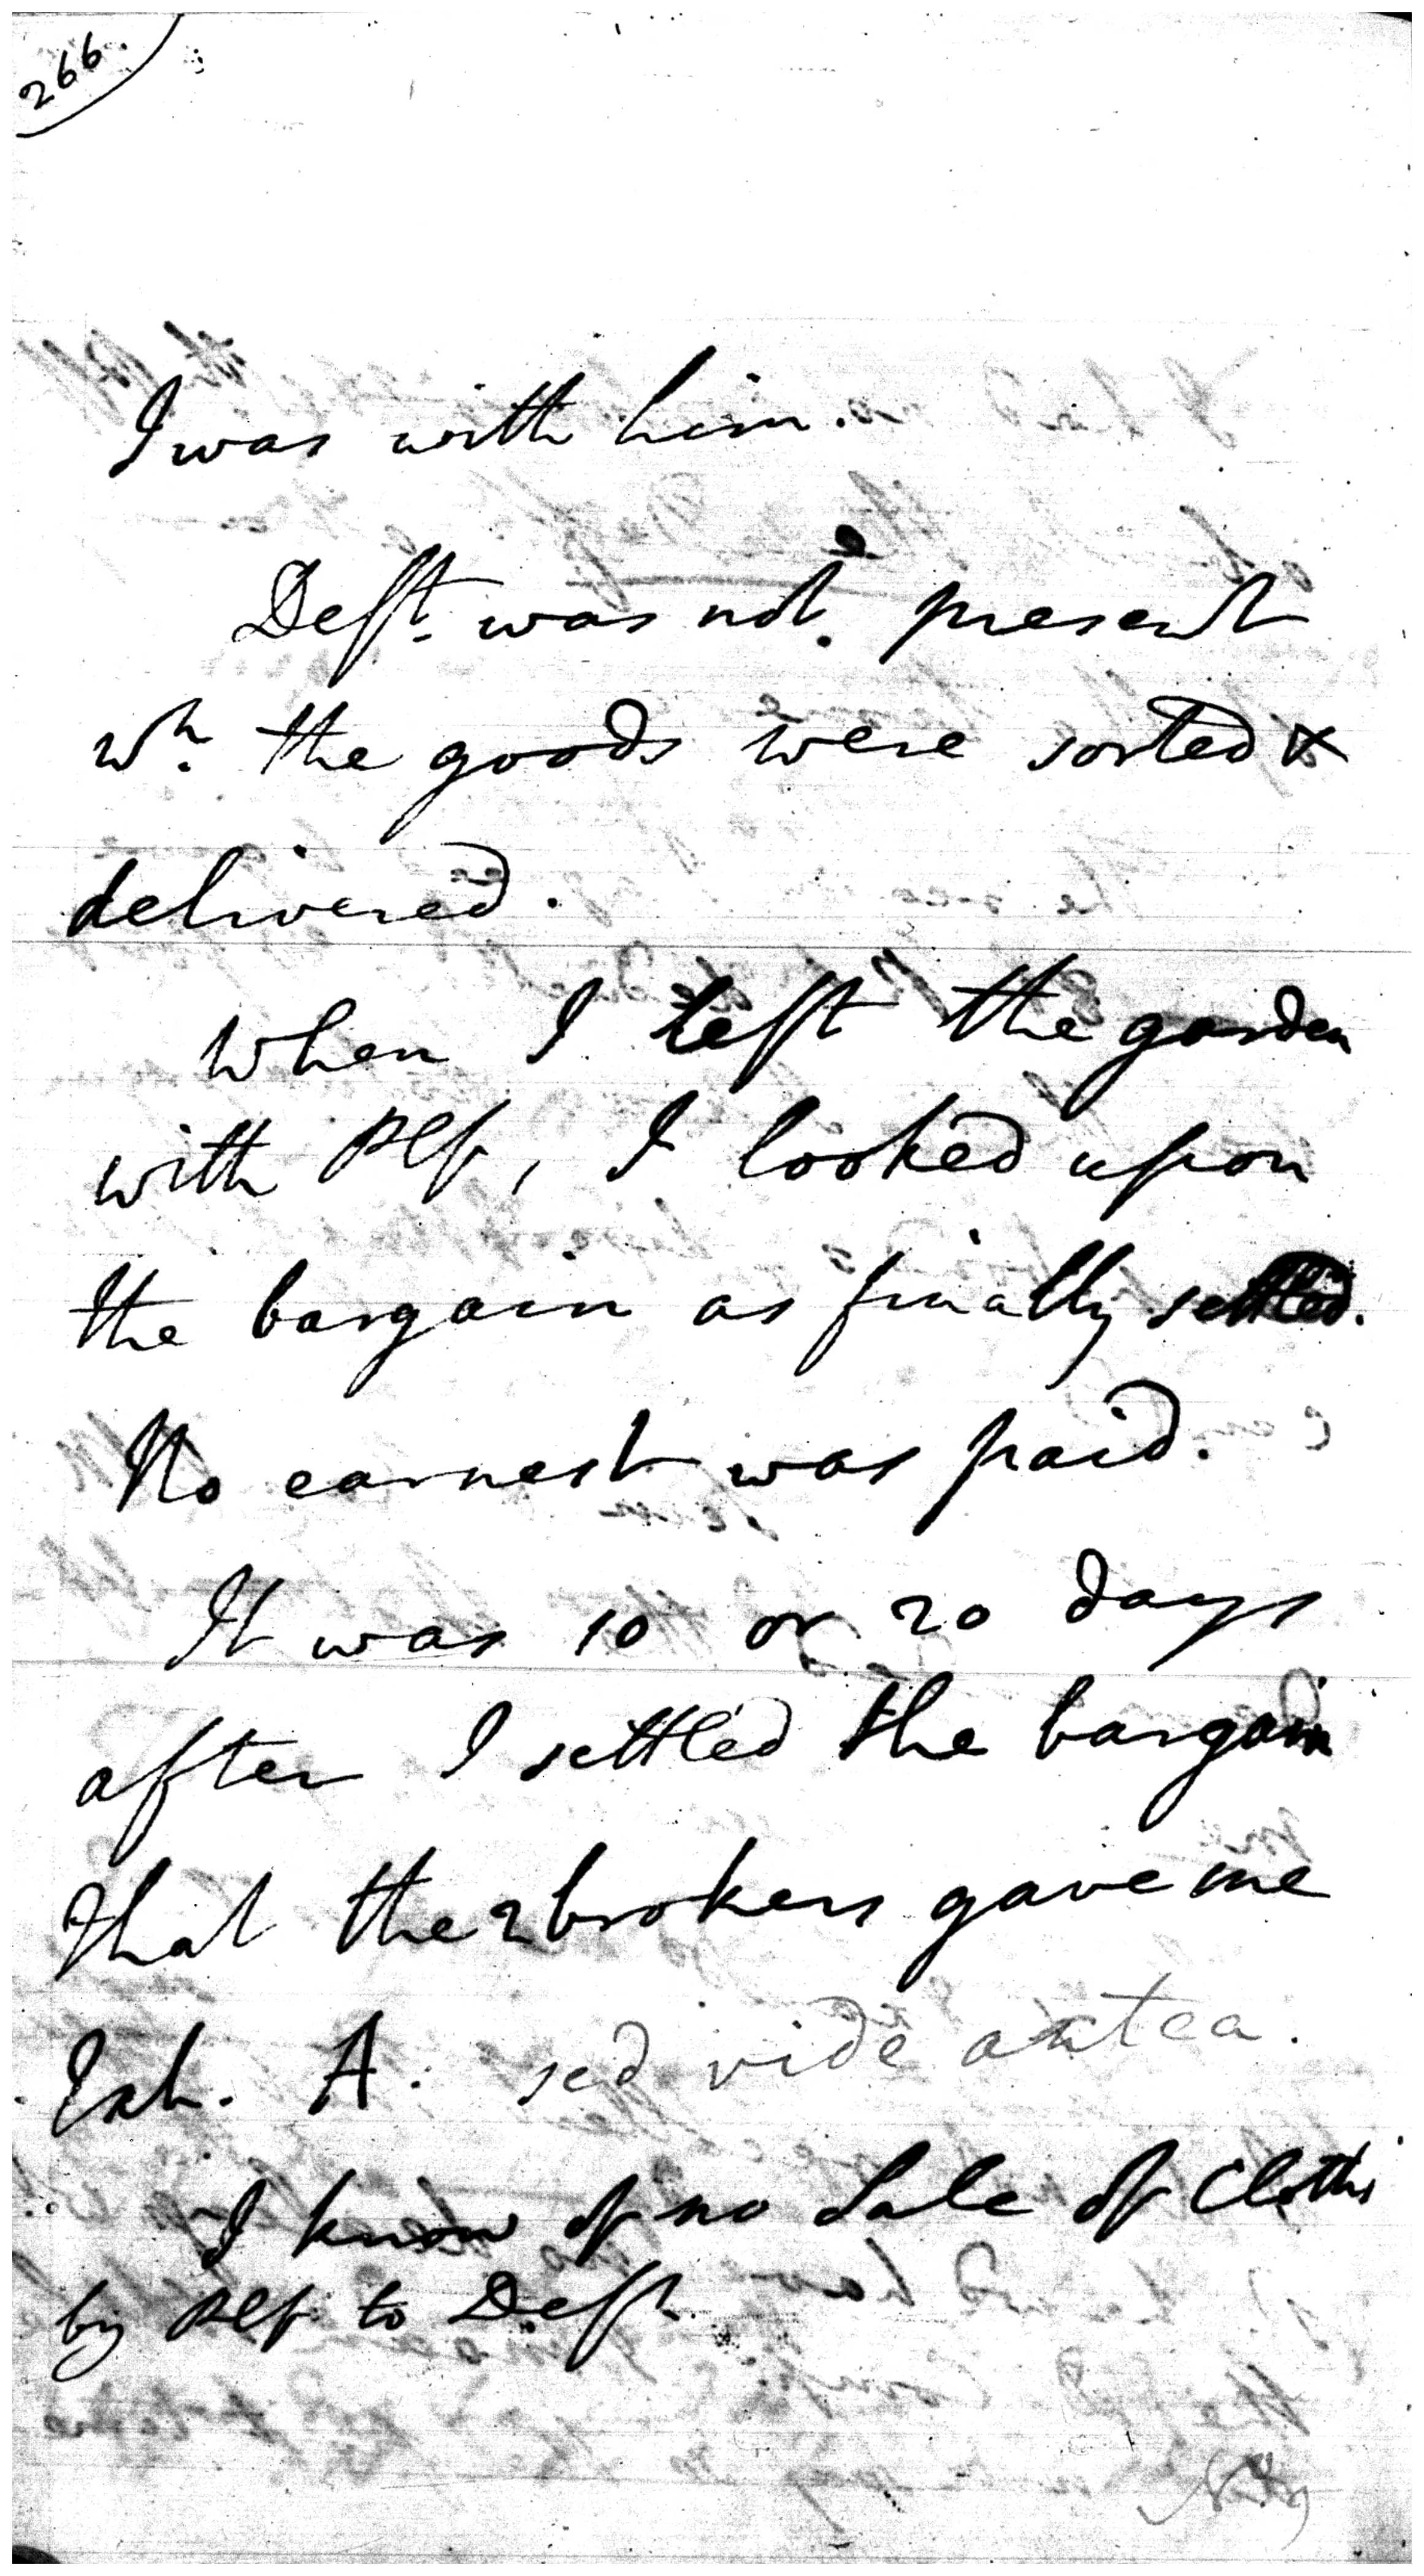 266.
I was with him.
Deft. was not present
wn. the goods were sorted &
delivered.
When I left the garden
with Plf, I looked upon
the bargain as finally settled.
No earnest was paid.
It was 10 or 20 days
after I settled the bargain
that the 2 brokers gave me
Exh. A. sed vide antea.
I know of no Sale of Cloths
by Plf to Deft.